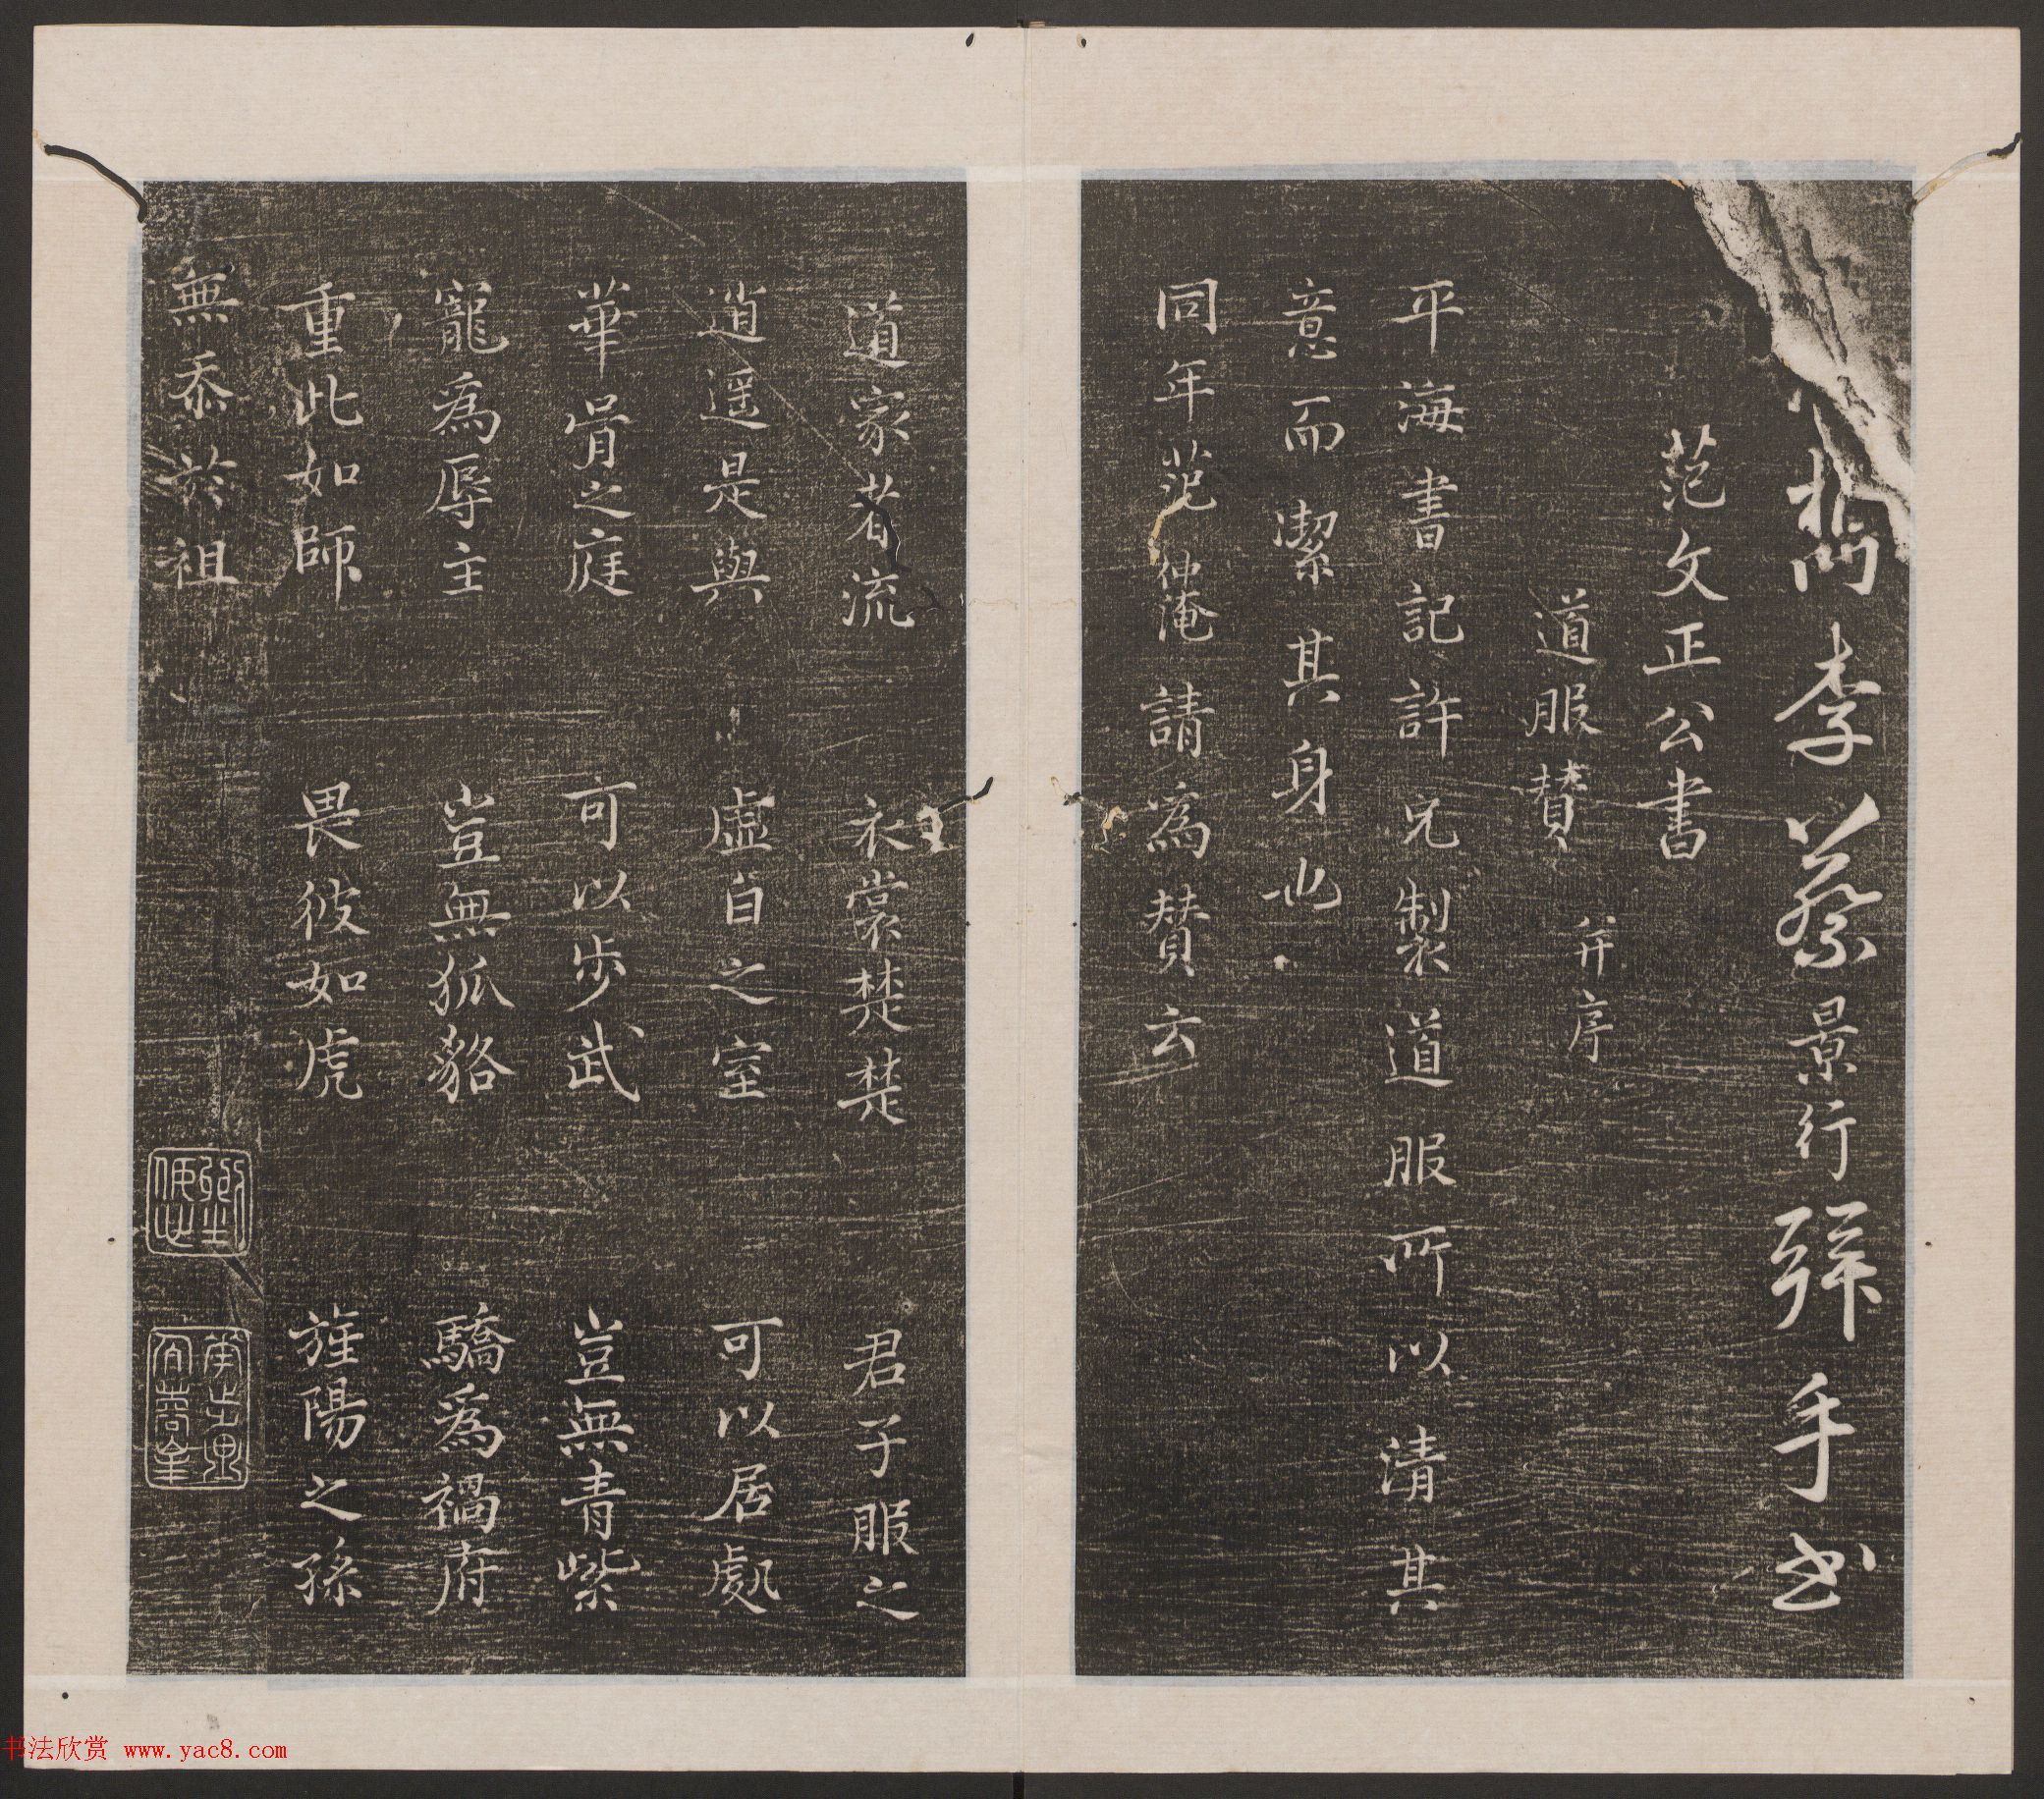 李蔡景行弆手书
范文正公書
道服賛 并序
平海書記許兄製道服所以清其
意而潔其身也
同年范仲淹請為賛云
道家者流 衣裳楚楚 君子服之
逍遥是與 虛白之室 可以居處
華胥之庭 可以步武 豈無青紫
寵為辱主 豈無狐貉 驕為禍府
重此如師 畏彼如虎 旌陽之孫
無忝於祖
书法欣赏 www.yac8.com